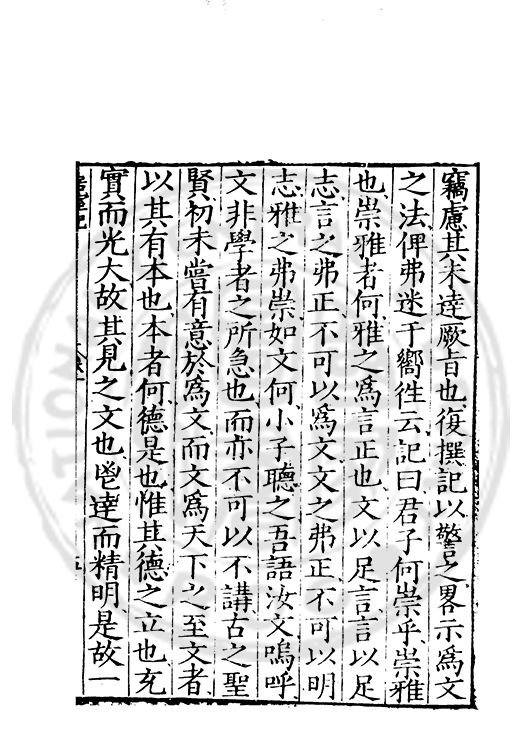 竊慮其未達厥旨也復撰記以警之畧示爲文
之法俾弗迷于嚮徃云記曰君子何崇乎崇雅
也崇雅者何雅之爲言正也文以足言言以足
志言之弗正不可以爲文文之弗正不可以明
志雅之弗崇如文何小子聽之吾語汝文嗚呼
文非學者之所急也而亦不可以不講古之聖
賢初未嘗有意於爲文而文爲天下之至文者
以其有本也本者何德是也惟其德之立也充
實而光大故其見之文也鬯達而精明是故一